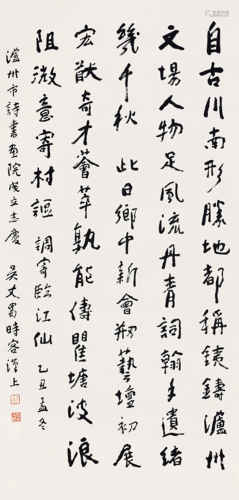 自古川南形勝地都稱鐵鑄瀘州
文場人物足風流丹青詞翰手遺緒
幾千秋此日鄉中新會刱藝壇初展
宏猷奇才薈萃孰能儔瞿塘波浪
阻微意寄村謳 調寄臨江仙 乙丑孟冬
瀘州市詩書畫院成立志慶 吳丈蜀時客漢上